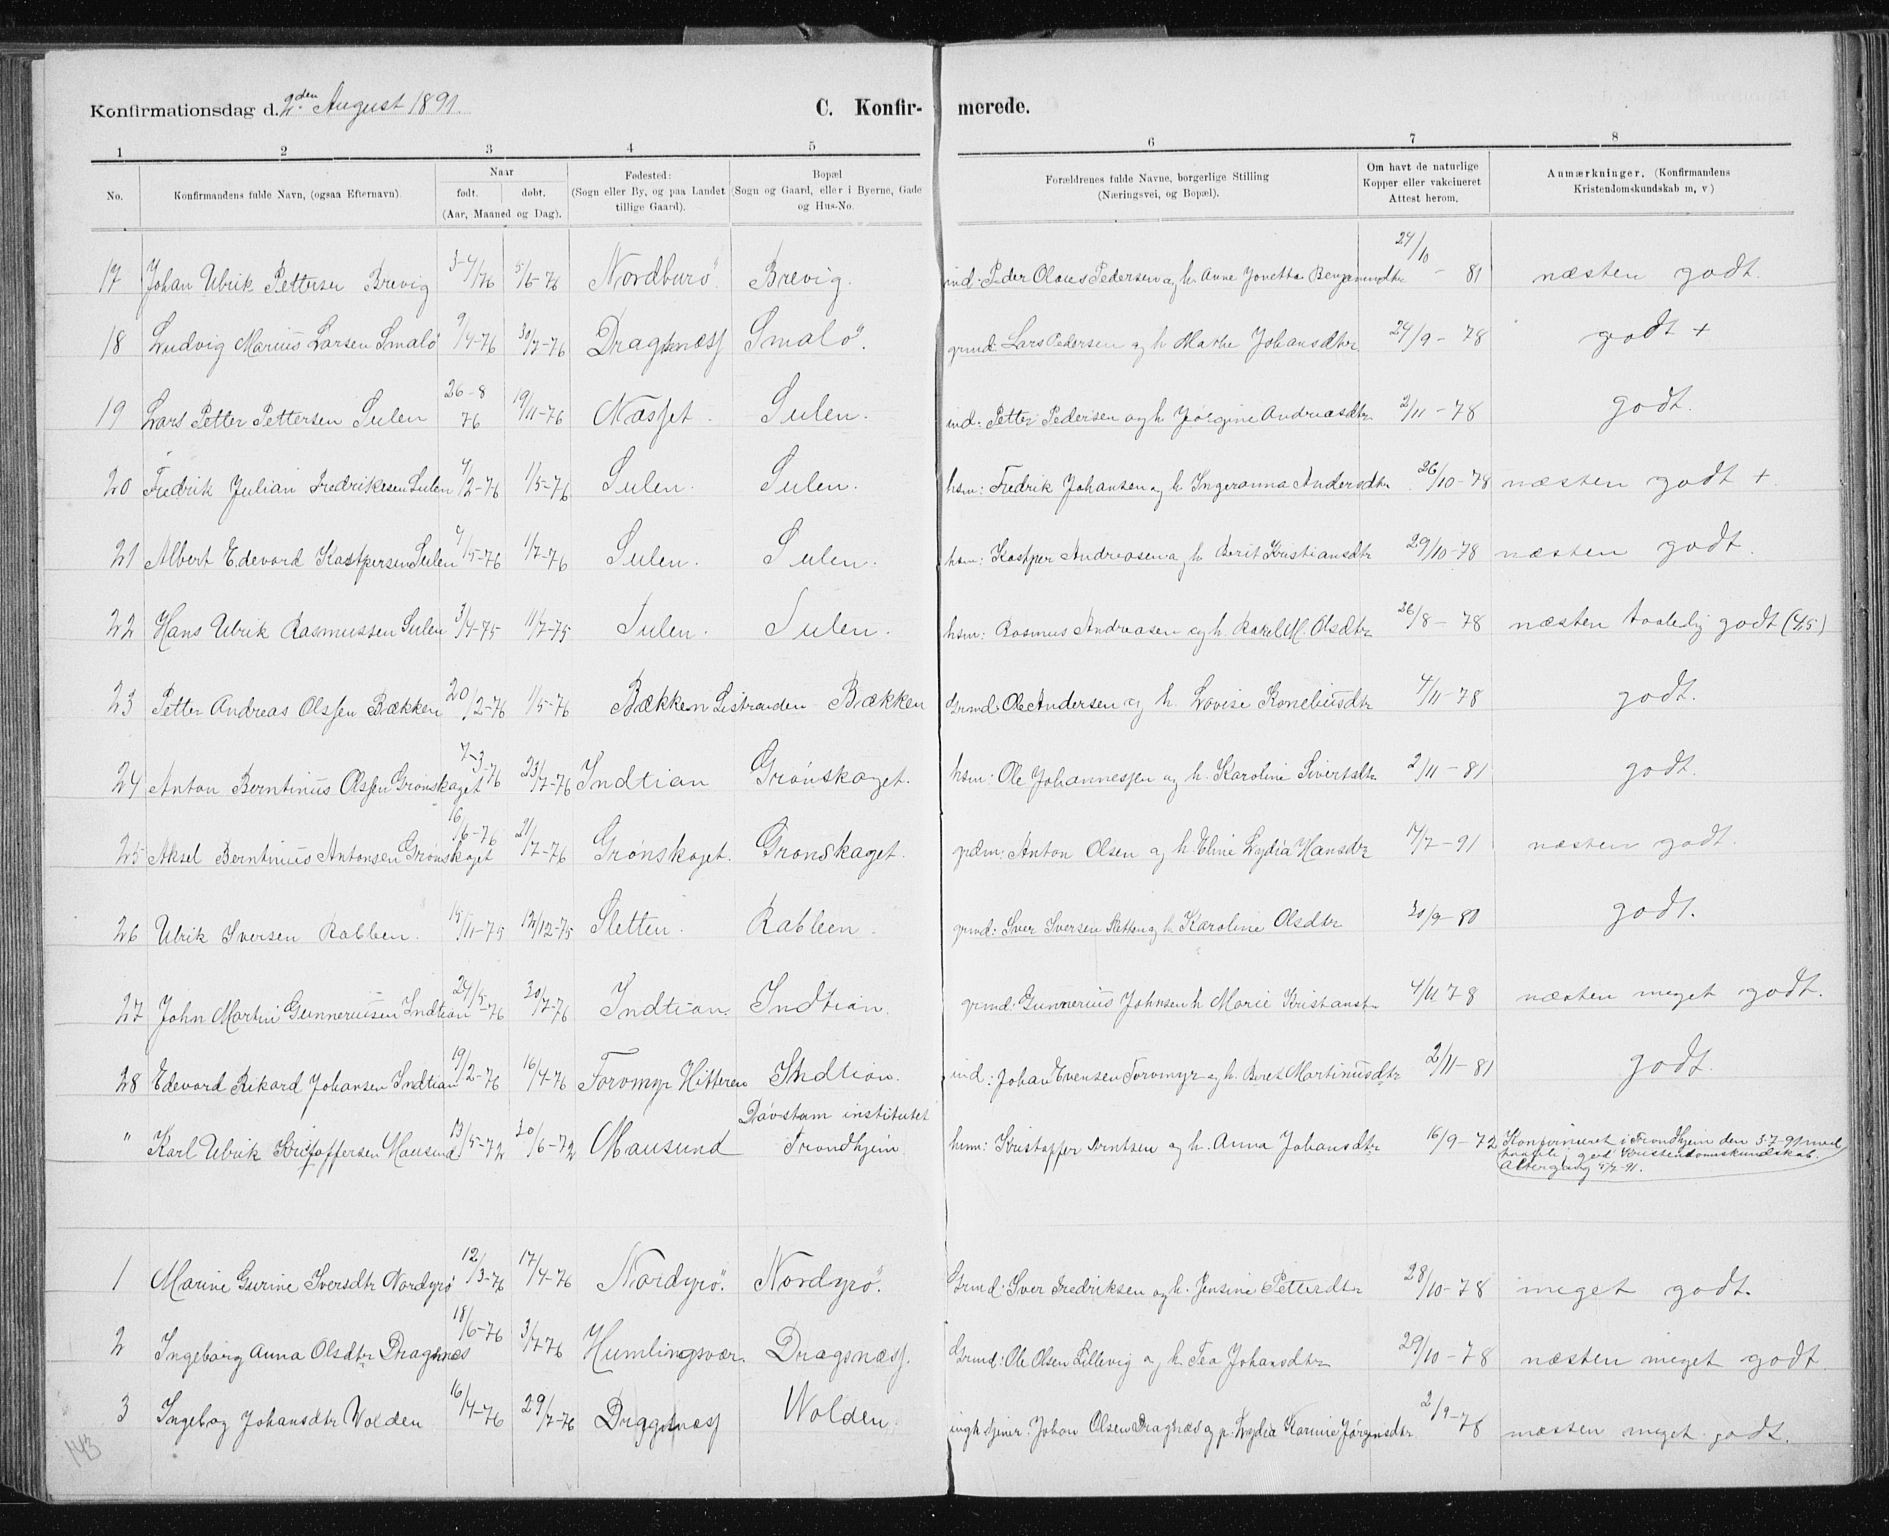 Konfirmationsdag d. 2den August 1891.
C. Konfir- merede.
1 2 3 4 5 6 7 8
No. Konfirmandens fulde Navn, (ogsaa Efternavn) Naar født. døbt. (Aar, Maaned og Dag). Fødested: (Sogn eller By, og paa Landet tillige Gaard). Bopæl (Sogn og Gaard, eller i Byerne, Gade og Hus-No. Forældrenes fulde Navne, borgerlige Stilling (Næringsvei, og Bopæl). Om havt de naturlige Kopper eller vakcineret Attest herom. Anmærkninger. (Konfirmandens Kristendomskundskab m, v)
17 Johan Ulrik Pettersen Brevig 3-4/76 5/6-76 Brevig. ind: Peder Olaus Pedersen og h. Anne Jonetta Benjamindtr 24/10 - 81 næsten godt.
18 Ludvig Marius Larsen Smalø 9/4-76 30/7-76 Dragsnæss Smalø. grmd: Lars Pedersen og h Marhe Johansdtr 24/9 - 78 godt +
19 Lars Petter Pettersen Sulen 26-8 76 19/11-76 Næsset Sulen. ind: Petter Pedersen og h. Jørgine Andreasdtr 2/11 - 78 godt.
20 Fredrik Julian Fredriksen Sulen 4/2-76 1/5-76 Sulen. Sulen. hsm: Fredrik Johansen og h. Ingeranna Andersdtr 26/10-78 næsten godt +
21 Albert Edevard Kastpersen Sulen 9/5-76 1/7-76 Sulen. Sulen. hsm: Kastper Andreasen og h. Berit Kristiansdtr 29/10-78 næsten godt.
22 Hans Ulrik Rasmussen Sulen 3/4-75 11/7-75 Sulen. Sulen. hsm: Rasmus Andreasen og h. Rakel M. Olsdtr 26/8 - 78 næsten taalelig godt
23 Petter Andreas Olssen Bækken 20/2-76 1/5-76 Bækken Bækken Grmd: Ole Andersen og h. Lovise Konebusdtr 4/11-78 godt.
24 Anton Berntinus Olssen Grønskaget 7-3-76 23/7-76 Indtian Grønskaget. hsm: Ole Johannessen og h. Karoline Sivertsdtr 2/11 - 81 godt.
25 Aksel Berntinus Antonsen Grønskaget 16/6-76 21/7-76 Grønskaget. Grønskaget. Anton Olsen og h. Eline Lydia Hansdtr 14/7 - 91 næsten godt.
26 Ulrik Iversen Rabben. 15/11-75 12/12-75 Sletten. Rabben. grmd: Iver Iversen Sletten og h. Karoline Olsdtr 30/9-80 godt.
27 John Martin Gunneriusen Indtian 24/5-76 30/7-76 Indtian Indtian. grmd: Gunnerius Johnsen h. Marie Kristianst 4/11 78 næsten meget godt.
28 Edevard Rikard Johansen Indtian 19/2-76 16/4-76 Forvmyr Hitteren Indtian. ind: Johan Evensen Forvmyr og h. Beret Martinusdtr 2/11-81 godt.
" Karl Ulrik Kristoffersen Mausund 13/5-72 30/6-72 Mausund Døvstum institutet Trondhjem. hsm: Kristoffer Berntsen og h. Anna Johansdtr 16/9-72 Konfirmeret i Trondhjem den 5-7-91 med
taalelig god Kristendomskundskab.
Altergang 5/7-91.
1 Marine Gurine Iversdtr Nordyrø 12/3-76 17/4-76 Nordyrø. Nordyrø. Grmd: Iver Fredriksen og h. Jensine Petterdtr 28/10-78 meget godt.
2 Ingeborg Anna Olsdtr Dragsnes 18/6-76 3/7-76 Humlingsvær. Dragsnæss. Grmd: Ole Olsen Lillevig og h. Tea Johansdtr 29/10-78 næsten meget godt.
3 Ingebog Johansdtr Volden 16/4-76 29/7-76 Dragsnæss Wolden. Johan Olsen Dragsnæs og p. Lydia Karine Jørgensdtr 2/9-78 næsten meget godt.
143